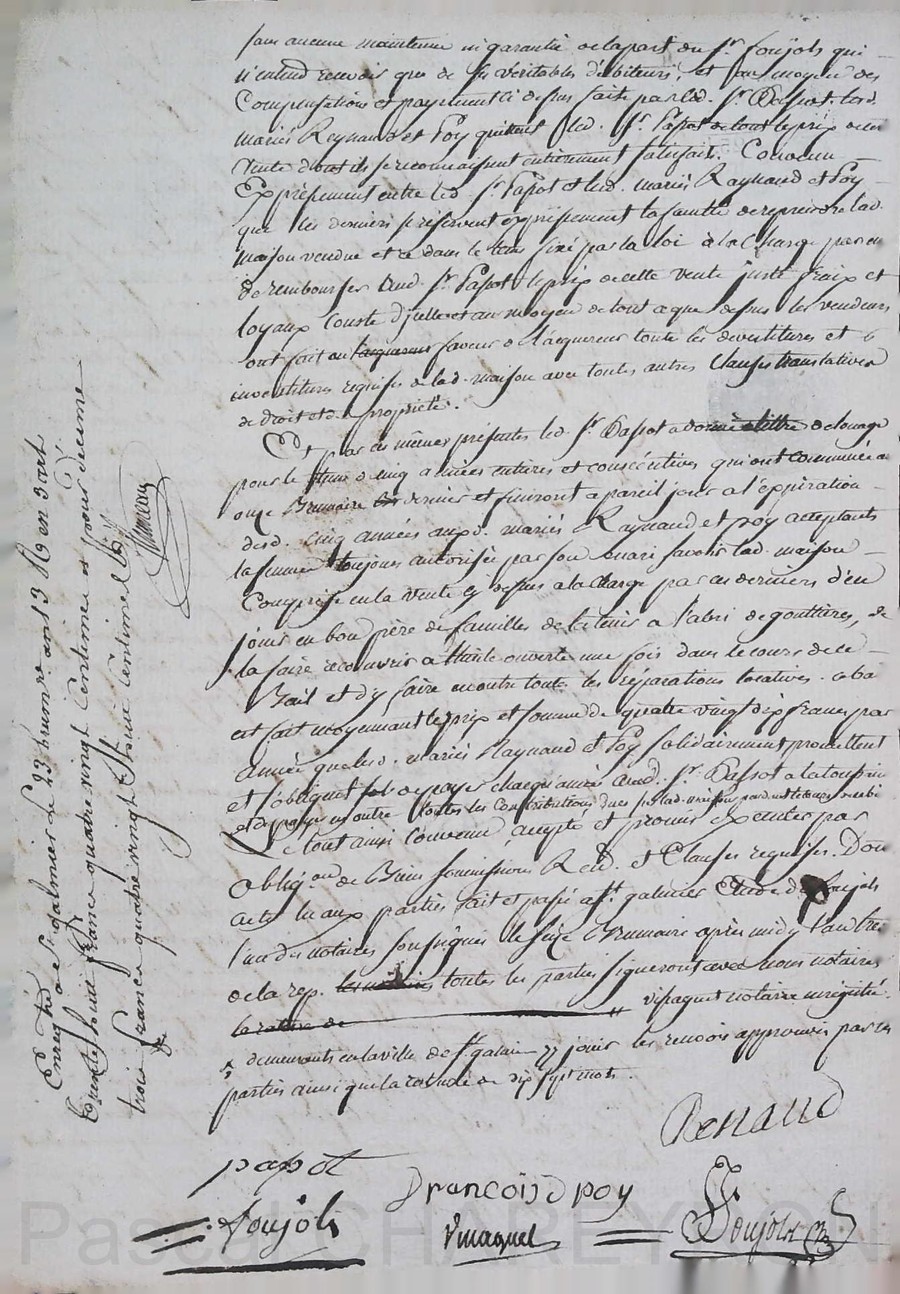 sans aucune maintenue ni garantie de la part du Sr. Soujols qui
n'entend recevoir que de ses véritables débiteurs, et au moyen des
Compensations et payement ci dessus faite par led. Sr. Passot. lesd.
mariés Reynaud et Poy quittent led. Sr. Papot de tout le prix de la
vente dont ils se reconnaissent entièrement satisfait. Convenu
Expressement entre led. Sr. Papot et led. mariés Raynaud et Poy
que les derniers se réservent expressement la faculté de reprendre lad.
maison vendue et ce dans le tems fixé par la loi à la charge par eux
de rembourser aud. Sr. Papot le prix de cette vente juste fraix et
loyaux Couste d'icelle et au moyen de tout ce que dessus les vendeurs
ont fait en faveur de l'acquereur toute les devestitures et
investitures requises de lad. maison avec toutes autres Clauses translatives
de droit et de propriété.
Et par ces mêmes présentes led. Sr. Passot a donné à titre de louage
pour le tems de cinq années entières et consécutives qui ont commencée au
onze Brumaire dernier et finiront a pareil jour a l'expiration
desd. cinq années auxd. mariés Raynaud et poy acceptants
la femme toujours autorisée par son mari savoir lad. maison
Comprise en la vente cy dessus a la charge par ces derniers d'en
jouir en bon père de familles de la tenir a l'abri de gouttières, de
la faire recouvrir a thuile ouverte une fois dans le cours de ce
Bail et d'y faire en outre toute les réparations locatives. ce bail
est fait moyennant le prix et somme de quatre vingt dix francs par
année que lesd. mariés Raynaud et Poy solidairement promettent
et s'obligent de payer chaque année aud. Sr. Passot
et de payer en outre toutes les Contributions dues sur lad. maison
Le tout ainsi convenu, accepté et promis executer par
oblig.on de Biens soumissions Ren. et Clauses requises. Dont
acte lu aux parties fait et passé a St. galmier Etude de Soujols
l'un des notaires soussignés le seize Brumaire après midy l'an treize
de la rep. toutes les parties signeront avec nous notaires
vipaguet notaire
demeurants en la ville de St. galmier jours les renvois approuvés par les
parties ainsi que la rature de dix sept mots.
Renaud
papot
François poy
Soujols
Vmaguet
Soujols
Enregtré a St. galmier le 23 brumaire an 13
trente huit francs quatre vingt centimes et pour decime
trois francs quatre vingt huit centimes